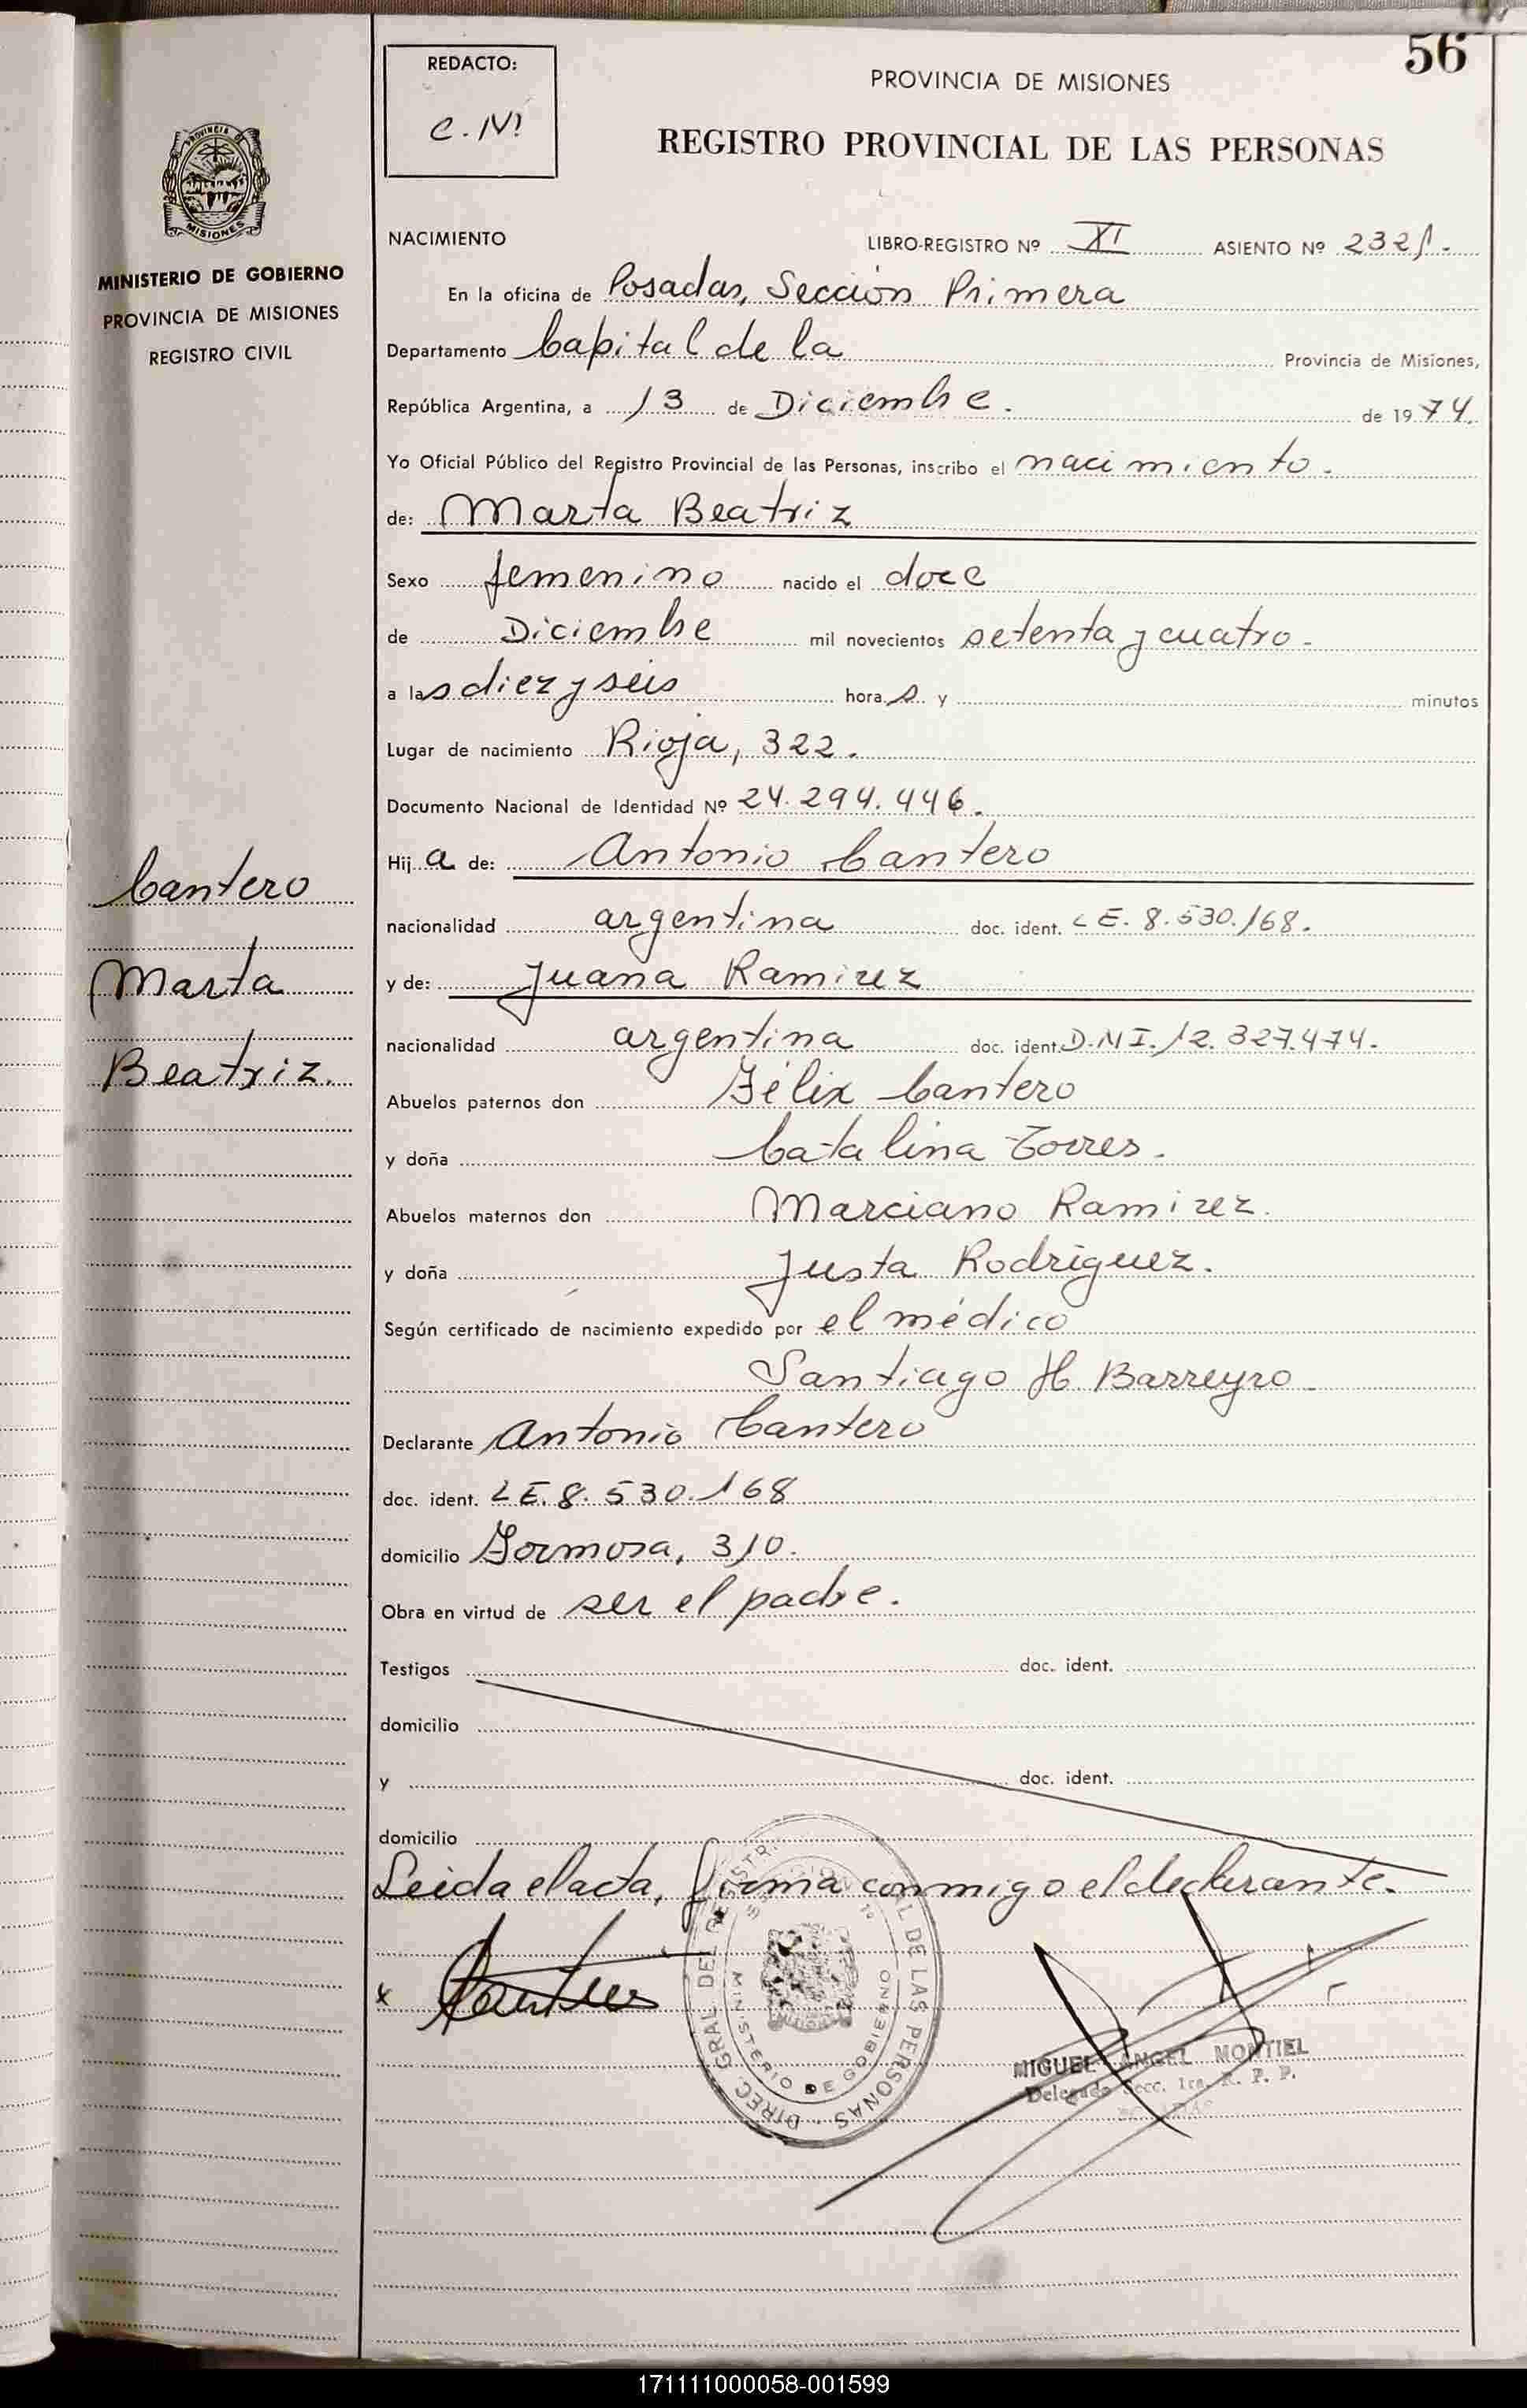 56
REDACTO:
C. N.
PROVINCIA DE MISIONES
REGISTRO PROVINCIAL DE LAS PERSONAS
PROVINCIA DE
MISIONES
MINISTERIO DE GOBIERNO
PROVINCIA DE MISIONES
REGISTRO CIVIL
Cantero
Marta
Beatriz.
NACIMIENTO LIBRO-REGISTRO Nº XI ASIENTO Nº
En la oficina de Posadas, Sección Primera
Departamento Capital de la Provincia de Misiones,
República Argentina, a 13 de Diciembre. de 1974.
Yo Oficial Público del Registro Provincial de las Personas, inscribo el nacimiento.
de: Marta Beatriz
Sexo femenino nacido el doce
de Diciembre mil novecientos setenta y cuatro.
a las diez y seis horas y minutos
Lugar de nacimiento Rioja, 322.
Documento Nacional de Identidad Nº 24.294.446.
Hija de: Antonio Cantero
nacionalidad argentina doc. ident. LE. 8.530.168.
y de: Juana Ramirez
nacionalidad argentina doc. ident. D.N.I. 12.327.474.
Abuelos paternos don Félix Cantero
y doña Catalina Torres.
Abuelos maternos don Marciano Ramirez.
y doña Justa Rodríguez.
Según certificado de nacimiento expedido por el médico
Santiago H Barreyro.
Declarante Antonio Cantero
doc. ident. LE. 8.530.168
domicilio Formosa, 310.
Obra en virtud de ser el padre.
Testigos doc. ident.
domicilio
y doc. ident.
domicilio
Leida el acta, firma conmigo el declarante.
x Cantero
DIREC. GRAL DEL REGISTR. L DE LAS PERSONAS
MINISTERIO DE GOBIERNO
MIGUEL ANGEL MONTIEL
Delegado Secc. 1ra. R. P. P.
171111000058-001599